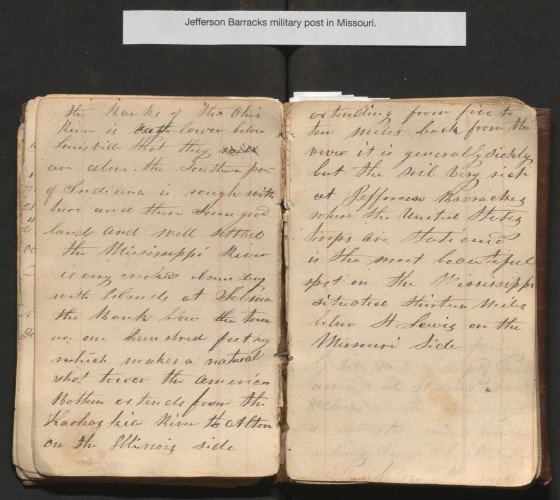 Jefferson Barracks military post in Missouri.
the Banks of the Ohio
River is lower below
Louisvill that they
are above. the Southern part
of Indiana is rough with
here and there some good
lands and well settled
the Mississippi River
is very crooked abounding
with Islands at Selma
the Bank below the town
are one hundred feet high
which makes a natural
shot tower the America
Bottom extends from the
Kaskaskia River to Alton
on the Illinois side
extending from five to
ten miles back from the
river it is generally sickly
but the soil very rich
at Jefferson Barrackes
where the United States
troops are stationed
is the most beautiful
spot on the Mississippi
situated thirteen miles
below St Lewis on the
Missouri Side